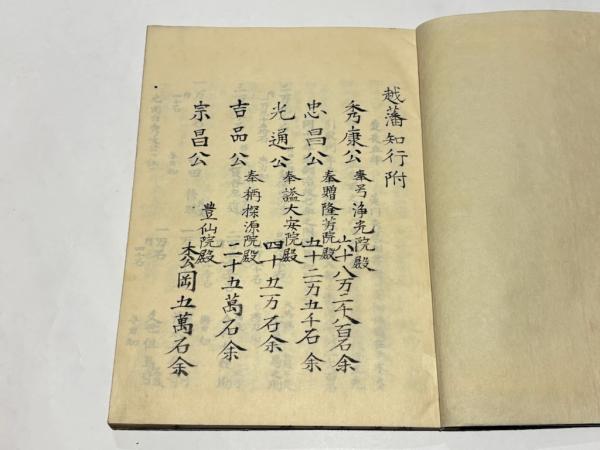 越藩知行附
秀康公 奉号浄光院殿 六十八万二千八百石余
忠昌公 奉贈隆芳院殿 五十二万五千石余
光通公 奉謚大安院殿 四十五万石余
吉品公 奉称探源院殿 二十五萬石余
宗昌公 豊仙院殿 岡五萬石余